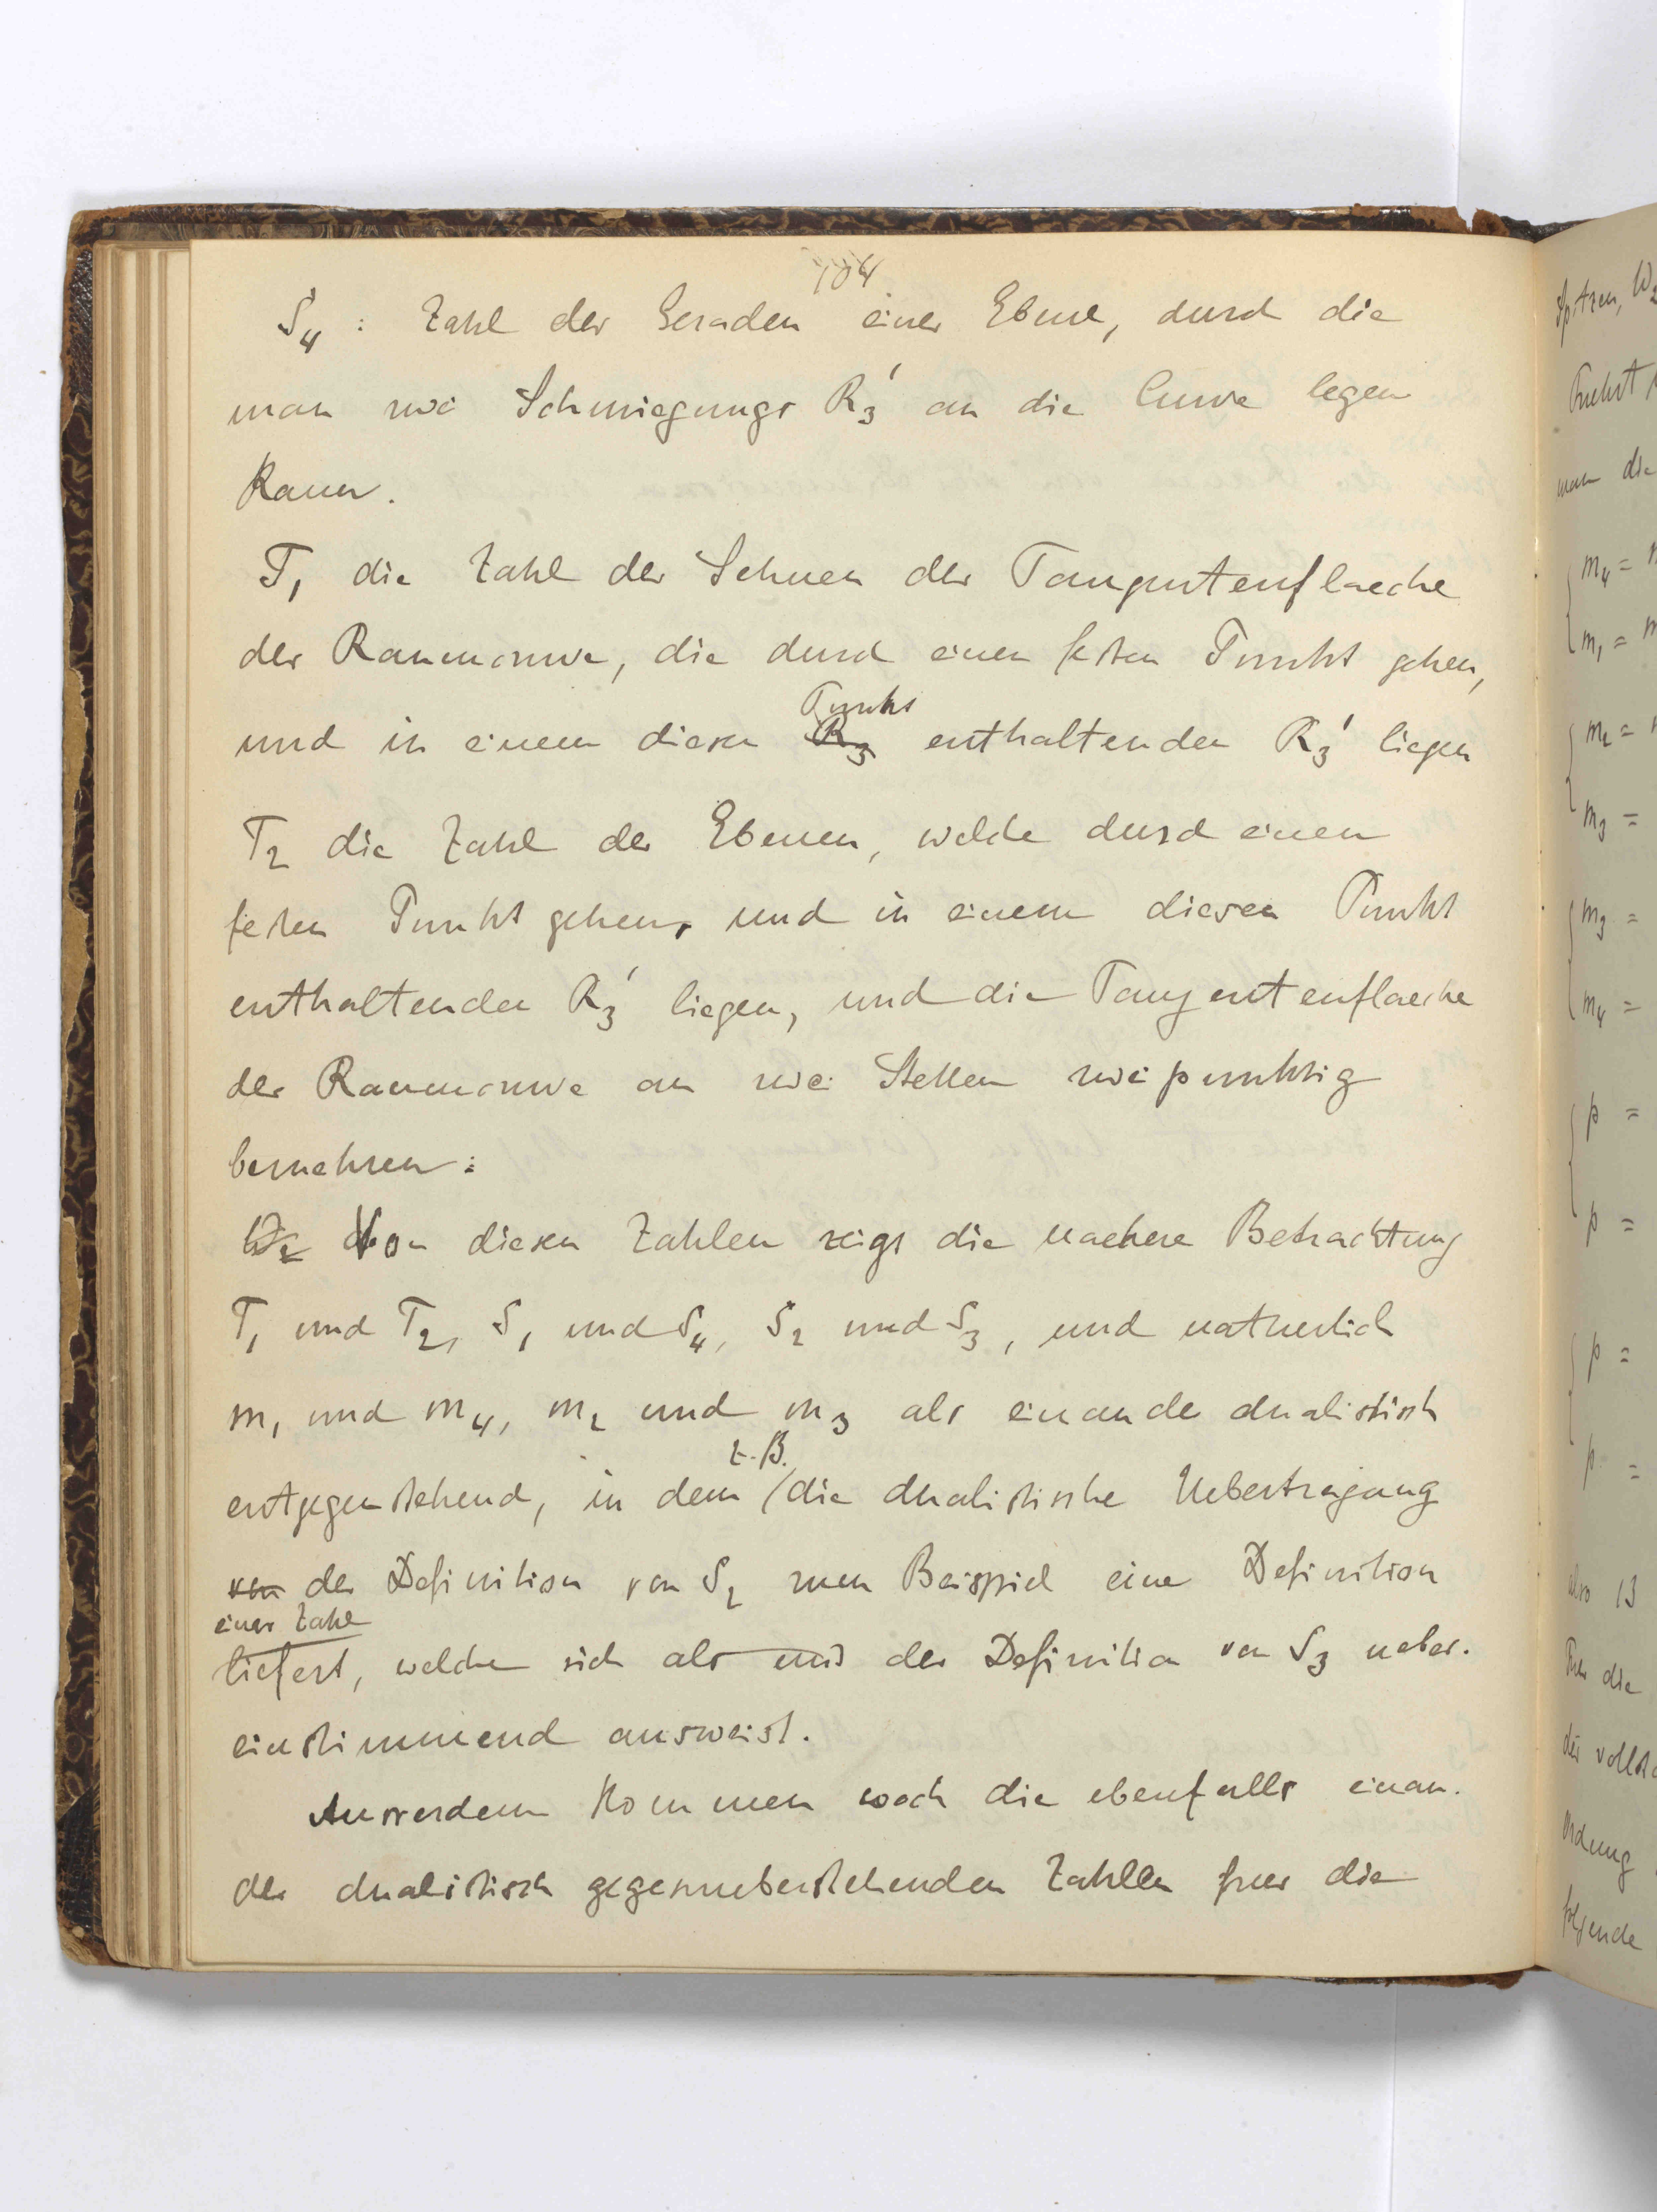 104
S₄ : Zahl der Geraden einer Ebene, durch die
man zwei Schmiegungs R₃' an die Curve legen
kann.
T₁ die Zahl der Sehnen der Tangentenflaeche
der Raumcurve, die durch einen festen Punkt gehen,
Punkt
und in einem diesen R₃ enthaltenden R₃' liegen
T₂ die Zahl der Ebenen, welche durch einen
festen Punkt gehen, und in einem diesen Punkt
enthaltenden R₃' liegen, und die Tangentenflaeche
der Raumcurve an zwei Stellen zweipunktig
beruehren:
Von diesen Zahlen zeigt die naehere Betrachtung
T₁ und T₂, S₁ und S₄, S₂ und S₃, und natuerlich
m₁ und m₄, m₂ und m₃ als einander dualistisch
z.B.
entgegenstehend, in dem die dualistische Uebertragung
von der Definition von S₂ zum Beispiel eine Definition
einer Zahl
liefert, welche sich als mit der Definition von S₃ ueber-
einstimmend ausweist.
Ausserdem kommen noch die ebenfalls einan-
der dualistisch gegenueberstehenden Zahlen fuer die
Spitzen, W₂
Punkt
man die
m₄ =
m₁ =
m₂ =
m₃ =
m₃ =
m₄ =
p =
p =
p =
p =
also 13
die
vollst
Ordnung
folgende